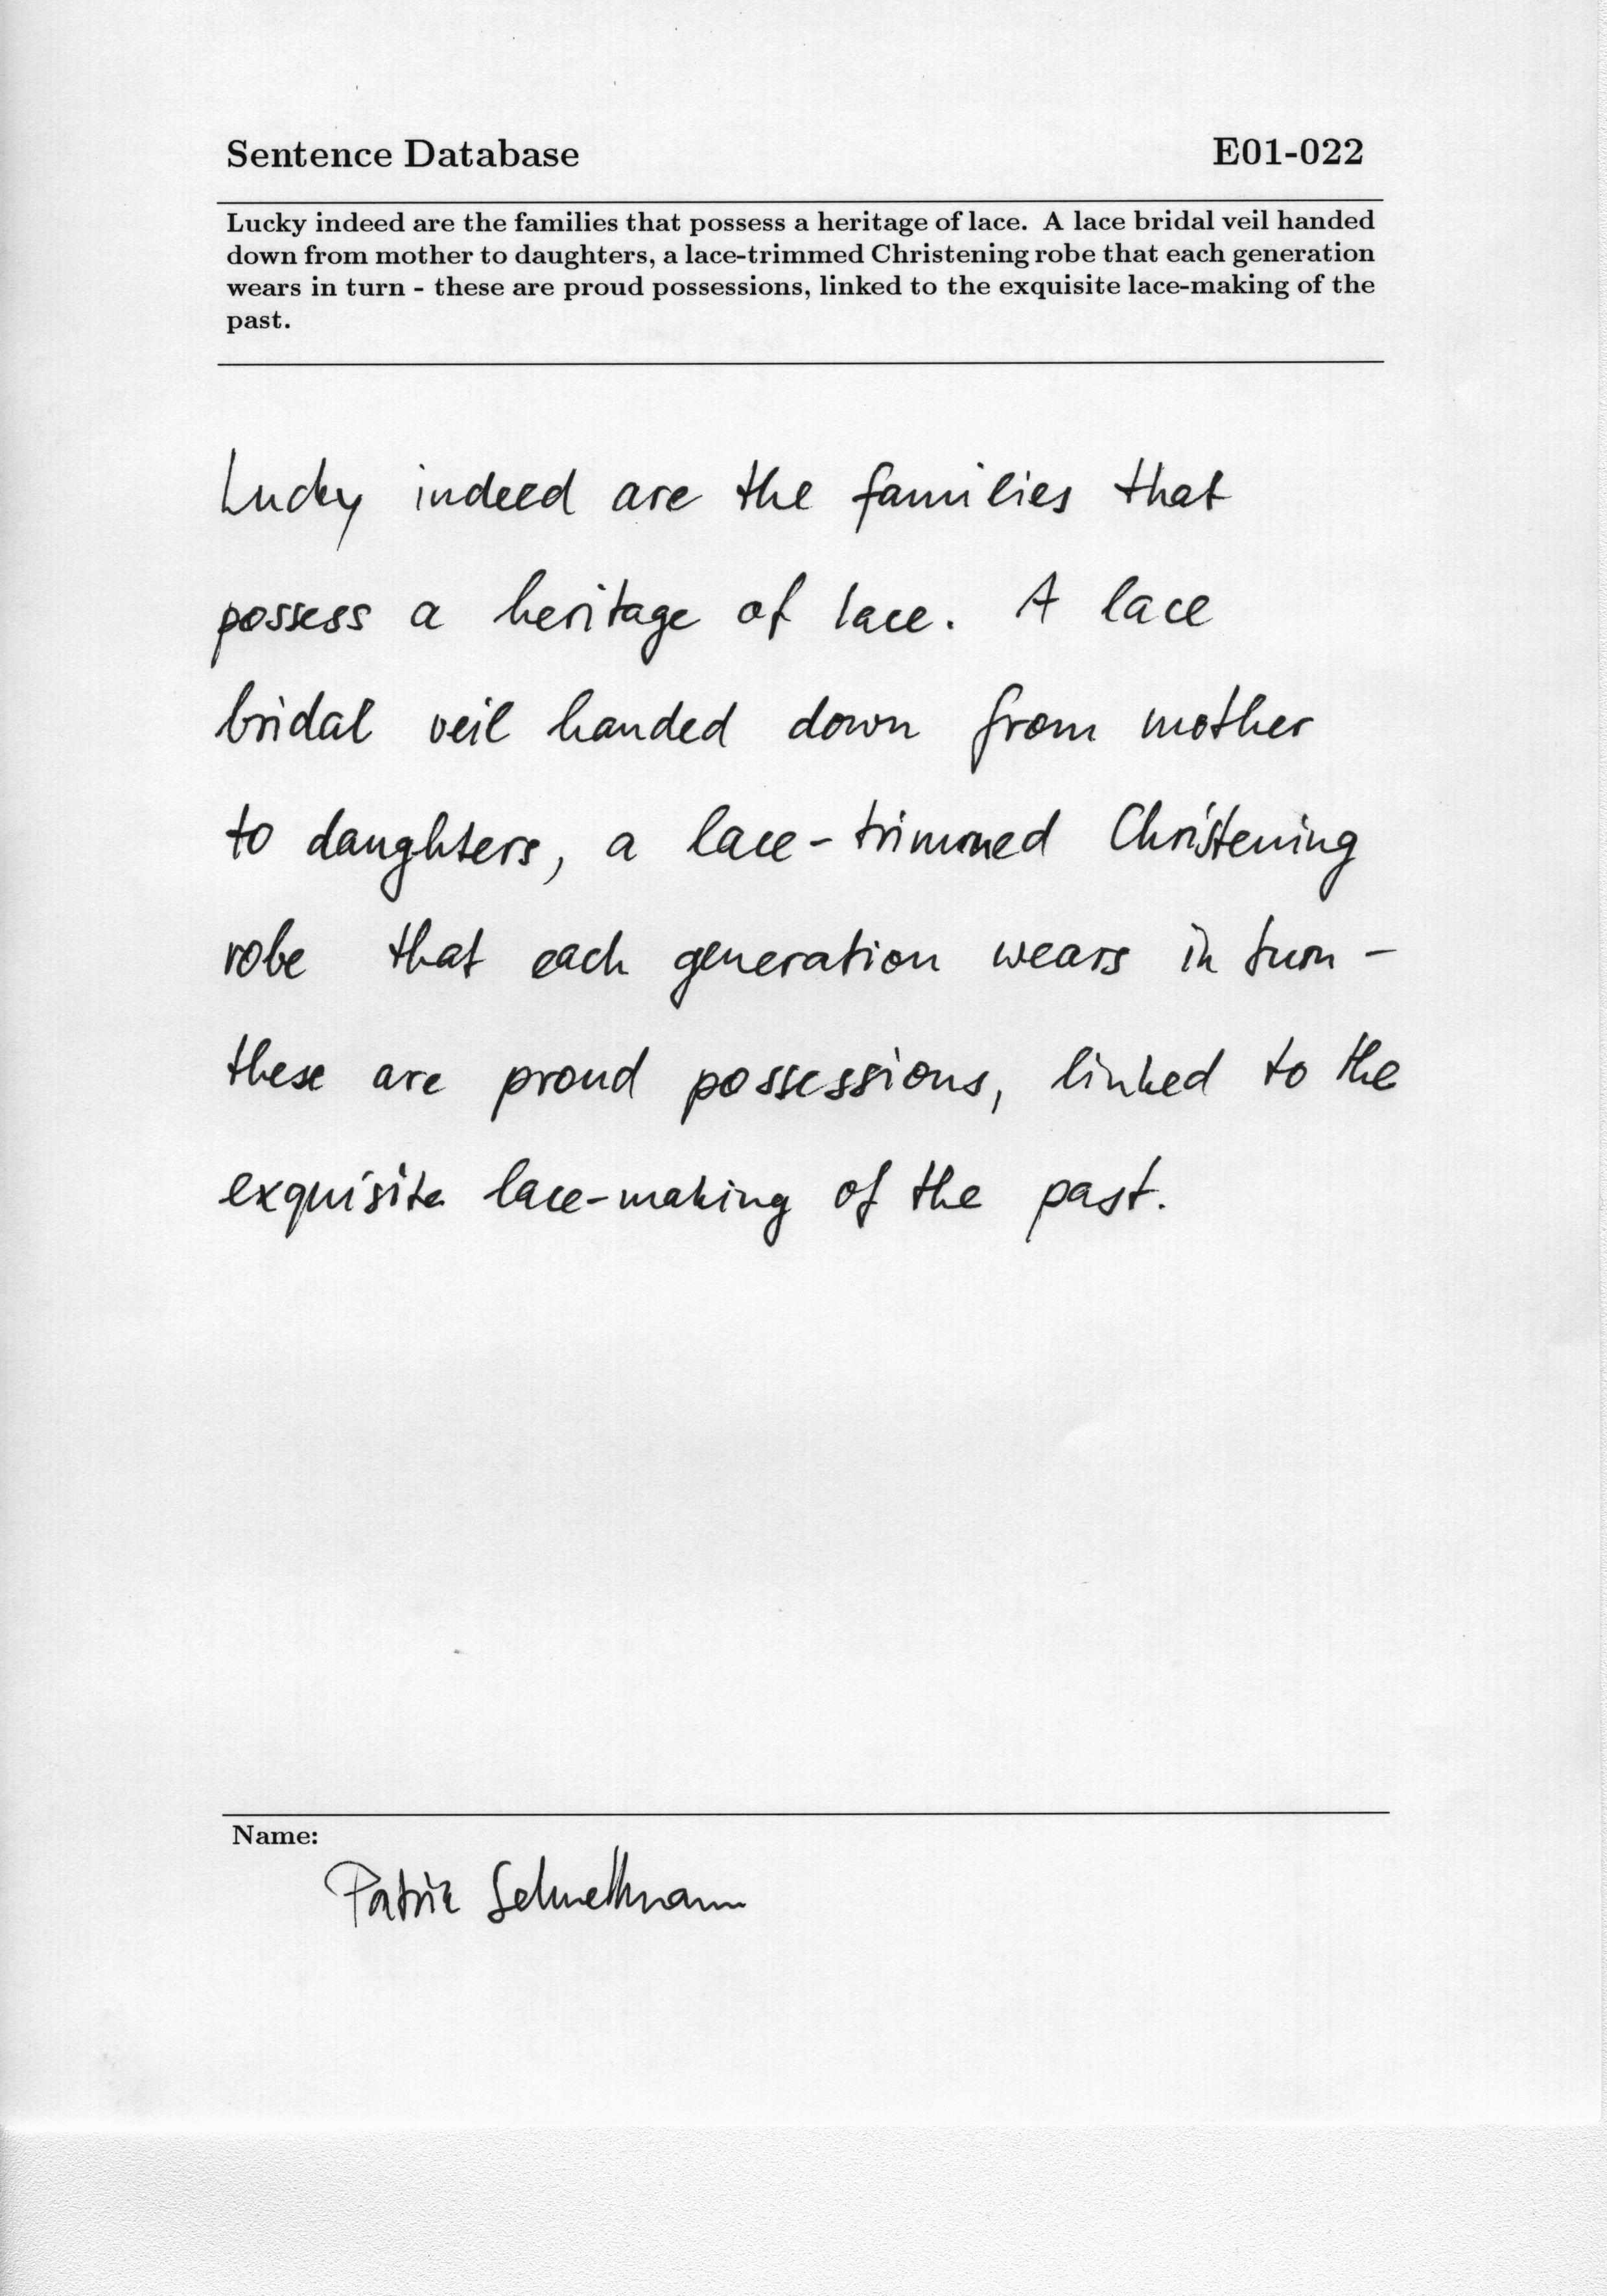 Sentence Database E01-022
Lucky indeed are the families that possess a heritage of lace. A lace bridal veil handed
down from mother to daughters, a lace-trimmed Christening robe that each generation
wears in turn - these are proud possessions, linked to the exquisite lace-making of the
past.
Lucky indeed are the families that
possess a heritage of lace. A lace
bridal veil handed down from mother
to daughters, a lace-trimmed Christening
robe that each generation wears in turn -
these are proud possessions, linked to the
exquisite lace-making of the past.
Name:
Patrik